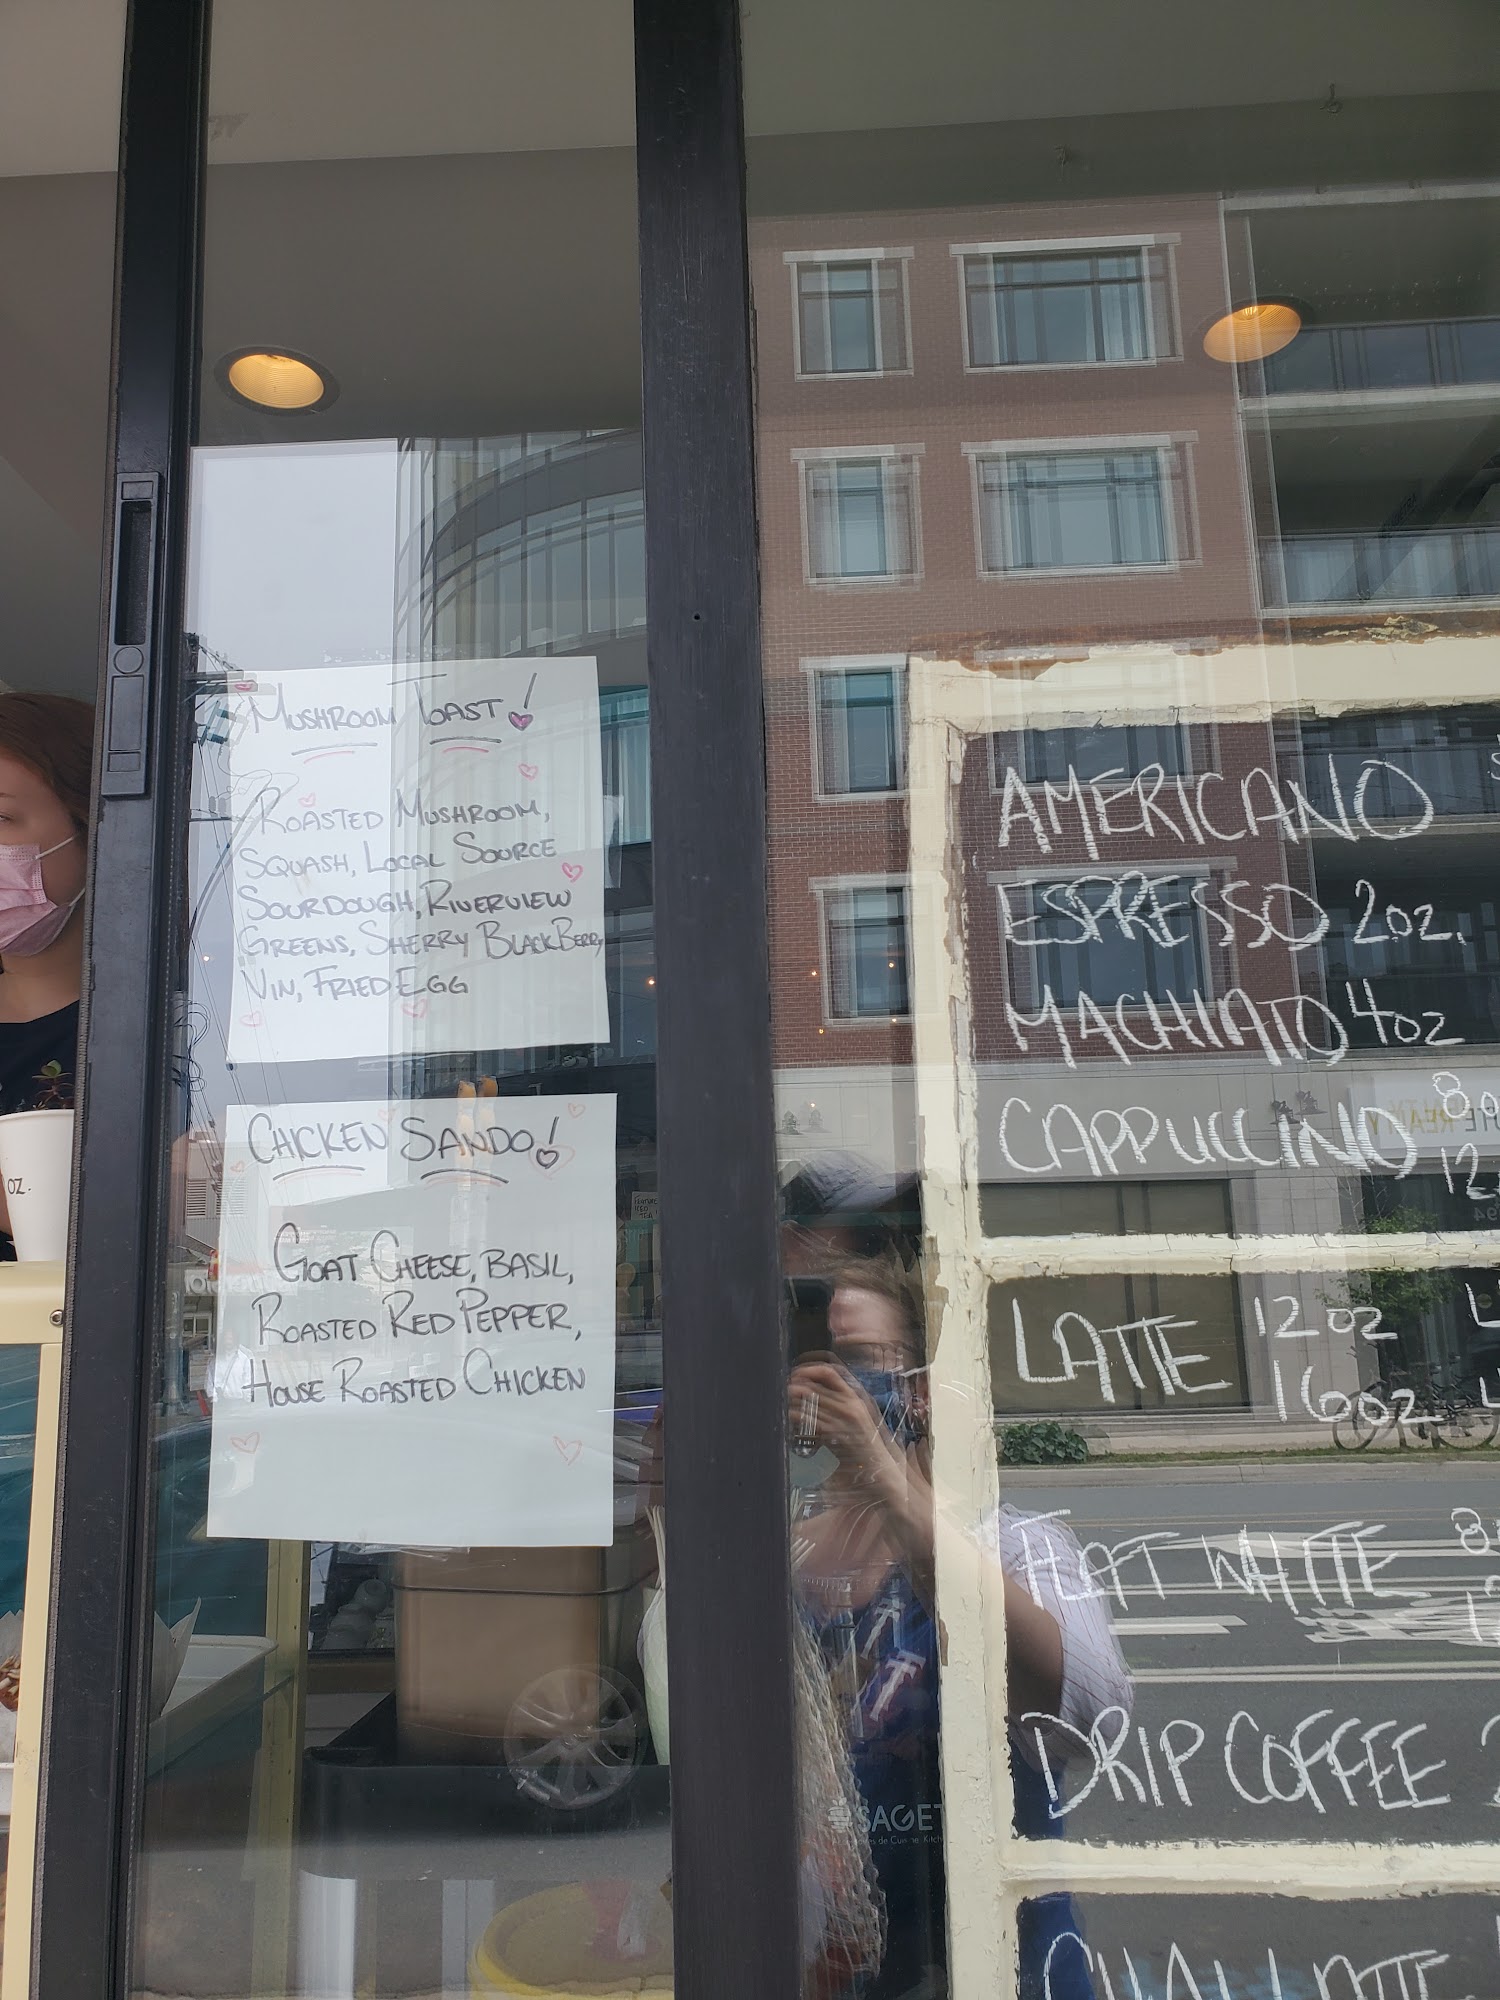 MUSHROOM TOAST!
ROASTED MUSHROOM,
SQUASH, LOCAL SOURCE
SOURDOUGH, RIVERVIEW
GREENS, SHERRY BLACKBERRY
VIN, FRIED EGG
CHICKEN SANDO!
GOAT CHEESE, BASIL,
ROASTED RED PEPPER,
HOUSE ROASTED CHICKEN
OZ.
AMERICANO
ESPRESSO 2oz.
MACHIATO 4oz
CAPPUCCINO 8
12
LATTE 12oz
16oz
FLAT WHITE 8
12
DRIP COFFEE
CHAI LATTE
SAGET